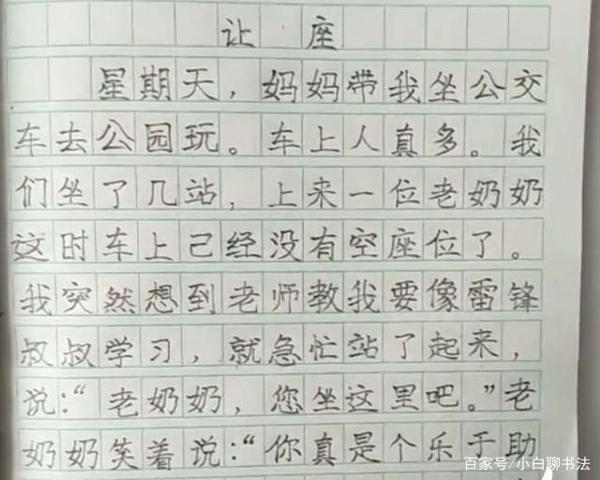 让座
星期天，妈妈带我坐公交
车去公园玩。车上人真多。我
们坐了几站，上来一位老奶奶
这时车上已经没有空座位了。
我突然想到老师教我要像雷锋
叔叔学习，就急忙站了起来，
说：“老奶奶，您坐这里吧。”老
奶奶笑着说：“你真是个乐于助
百家号/小白聊书法